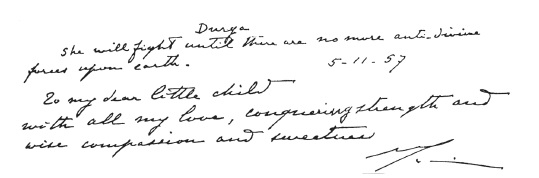 Durga
She will fight until there are no more anti-divine
forces upon earth.
5-11-57
To my dear little child
with all my love, conquering strength and
wise compassion and sweetness